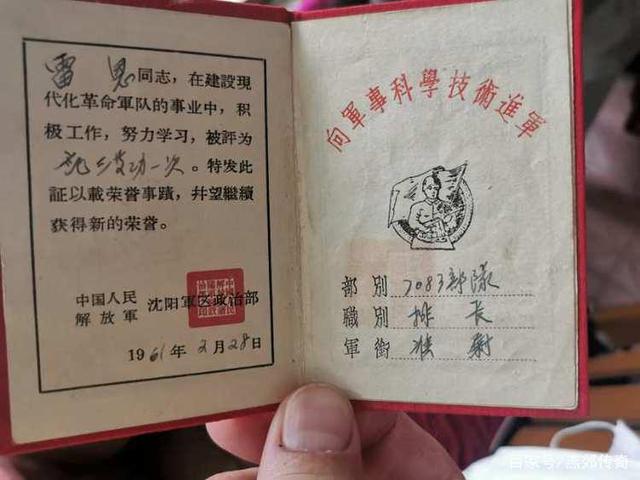 雷恩同志，在建設現
代化革命軍队的事业中，积
极工作，努力学习，被評为
記三等功一次。特发此
証以載荣誉事蹟，幷望繼續
获得新的荣誉。
中国人民
解放軍 沈阳軍区政治部
1961年2月28日
向軍事科學技術進軍
部别 7083部隊
職别 排长
軍銜 准尉
百家号/燕郊传奇